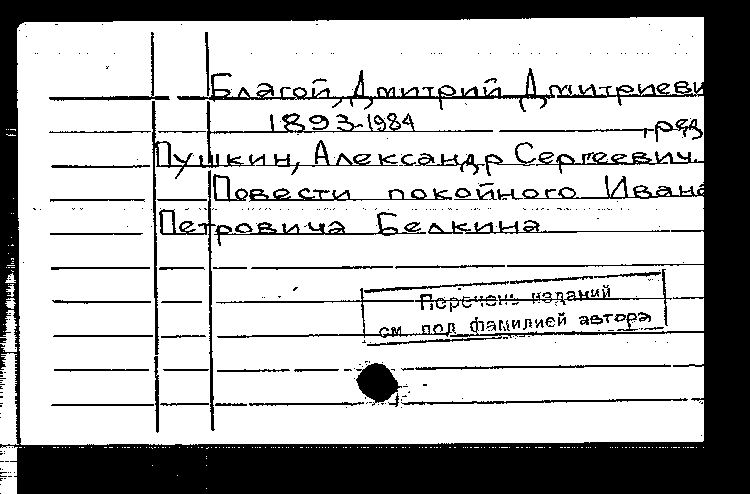 Благой, Дмитрий Дмитриеви
1893-1984 , ред
Пушкин, Александр Сергеевич.
Повести покойного Ивана
Петровича Белкина
Перечень изданий
см. под фамилией автора